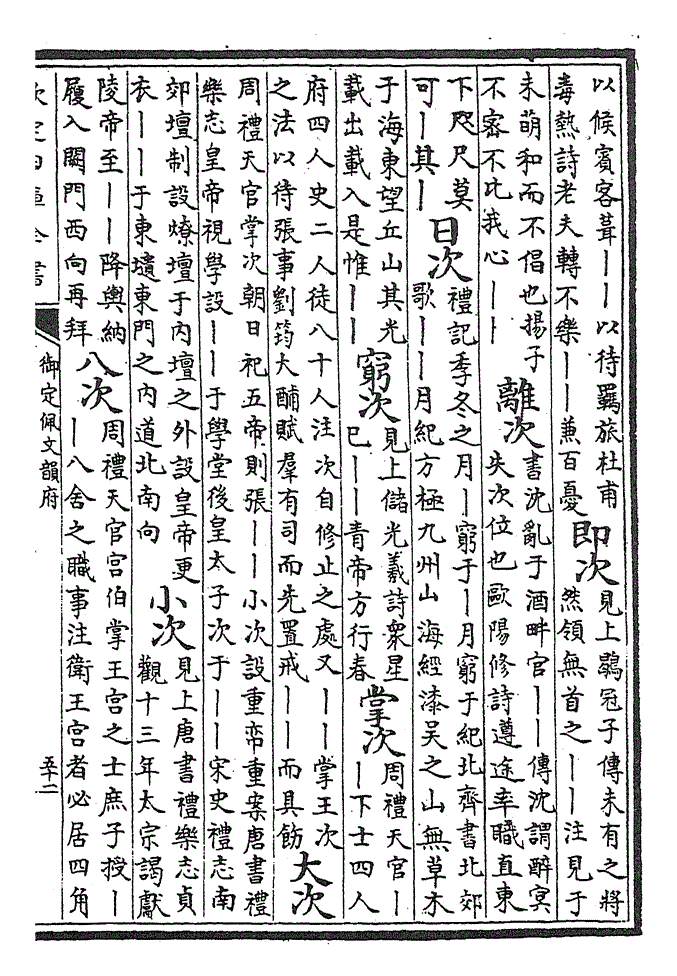 以候賓客葺丨丨以待羇旅杜甫
毒熱詩老夫轉不樂丨丨兼百憂
即次
見上鶡冠子傳未有之將
然領無首之丨丨注見于
未萌和而不倡也揚子
不宻不比我心丨丨
離次
書沈亂于酒畔官丨丨傳沈謂醉冥
失次位也歐陽修詩遵途率職直東
下咫尺莫
可丨其丨
日次
禮記季冬之月丨窮于丨月窮于紀北齊書北郊
歌丨丨月紀方極九州山海經漆吴之山無草木
于海東望丘山其光
載出載入是惟丨丨
窮次
見上儲光羲詩衆星
已丨丨青帝方行春
掌次
周禮天官丨
丨下士四人
府四人史二人徒八十人注次自修止之處又丨丨掌王次
之法以待張事劉筠大酺賦羣有司而先置戒丨丨而具飭
大次
周禮天官掌次朝日祀五帝則張丨丨小次設重帟重案唐書禮
樂志皇帝視學設丨丨于學堂後皇太子次于丨丨宋史禮志南
郊壇制設燎壇于内壇之外設皇帝更
衣丨丨于東壝東門之内道北南向
小次
見上唐書禮樂志貞
觀十三年太宗謁獻
陵帝至丨丨降輿納
履入闕門西向再拜
八次
周禮天官宫伯掌王宫之士庶子授丨
丨八舍之職事注衛王宫者必居四角
欽定四庫全書
御定佩文韻府
五十二